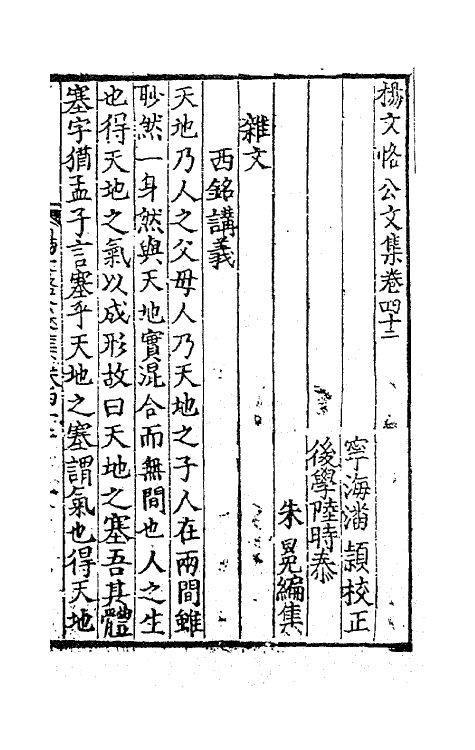 楊文恪公文集卷四十二
寧海潘頴校正
後學陸時泰
朱冕編集
雜文
西銘講義
天地乃人之父母人乃天地之子人在兩間雖
眇然一身然與天地實混合而無間也人之生
也得天地之氣以成形故曰天地之塞吾其體
塞字猶孟子言塞乎天地之塞謂氣也得天地